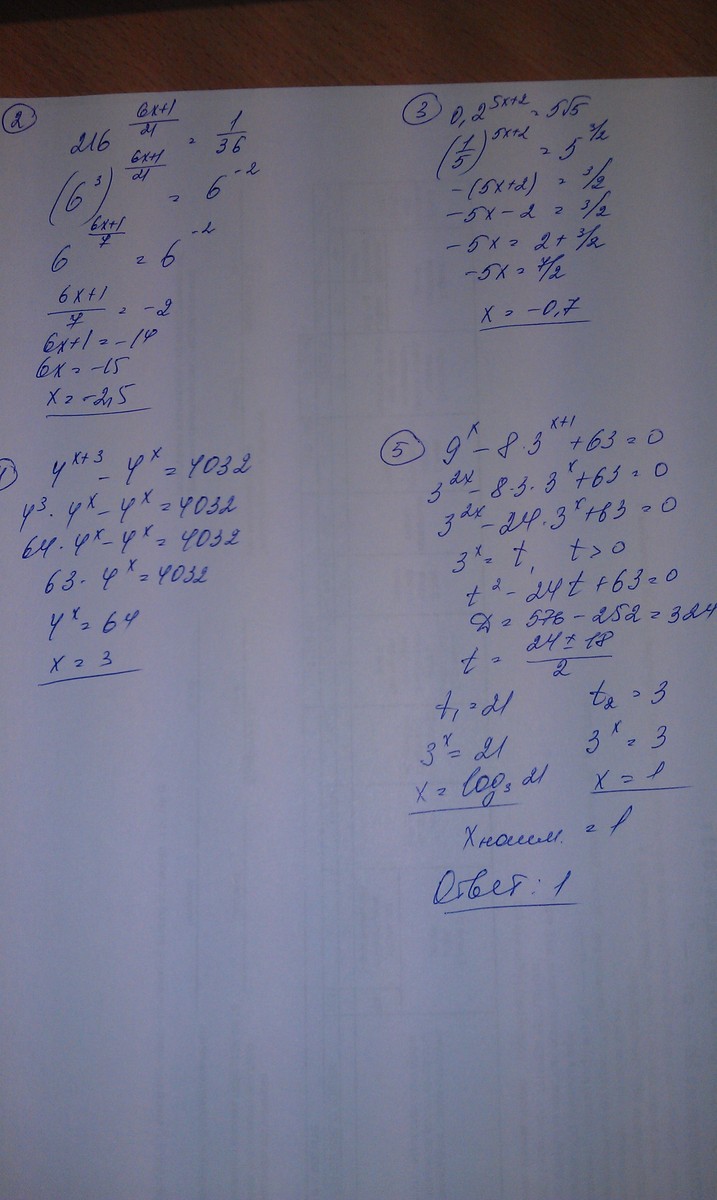 ② 216^((6x+1)/21) = 1/36
(6^3)^((6x+1)/21) = 6^(-2)
6^((6x+1)/7) = 6^(-2)
(6x+1)/7 = -2
6x+1 = -14
6x = -15
x = -2,5
③ 0,2^(5x+2) = 5√5
(1/5)^(5x+2) = 5^(3/2)
-(5x+2) = 3/2
-5x-2 = 3/2
-5x = 2+3/2
-5x = 7/2
x = -0,7
4^(x+3) - 4^x = 4032
4^3 · 4^x - 4^x = 4032
64 · 4^x - 4^x = 4032
63 · 4^x = 4032
4^x = 64
x = 3
⑤ 9^x - 8·3^(x+1) + 63 = 0
3^(2x) - 8·3·3^x + 63 = 0
3^(2x) - 24·3^x + 63 = 0
3^x = t, t > 0
t^2 - 24t + 63 = 0
D = 576 - 252 = 324
t = (24 ± 18)/2
t₁ = 21 t₂ = 3
3^x = 21 3^x = 3
x = log₃ 21 x = 1
x наим. = 1
Ответ: 1